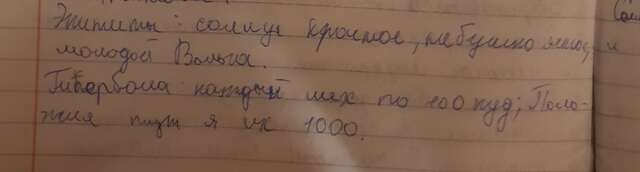 Эпитеты: солнце красное, небушко ясное, и
молодой Вольга.
Гипербола: каждый мех по 100 пуд; Поло-
жил я их 1000.